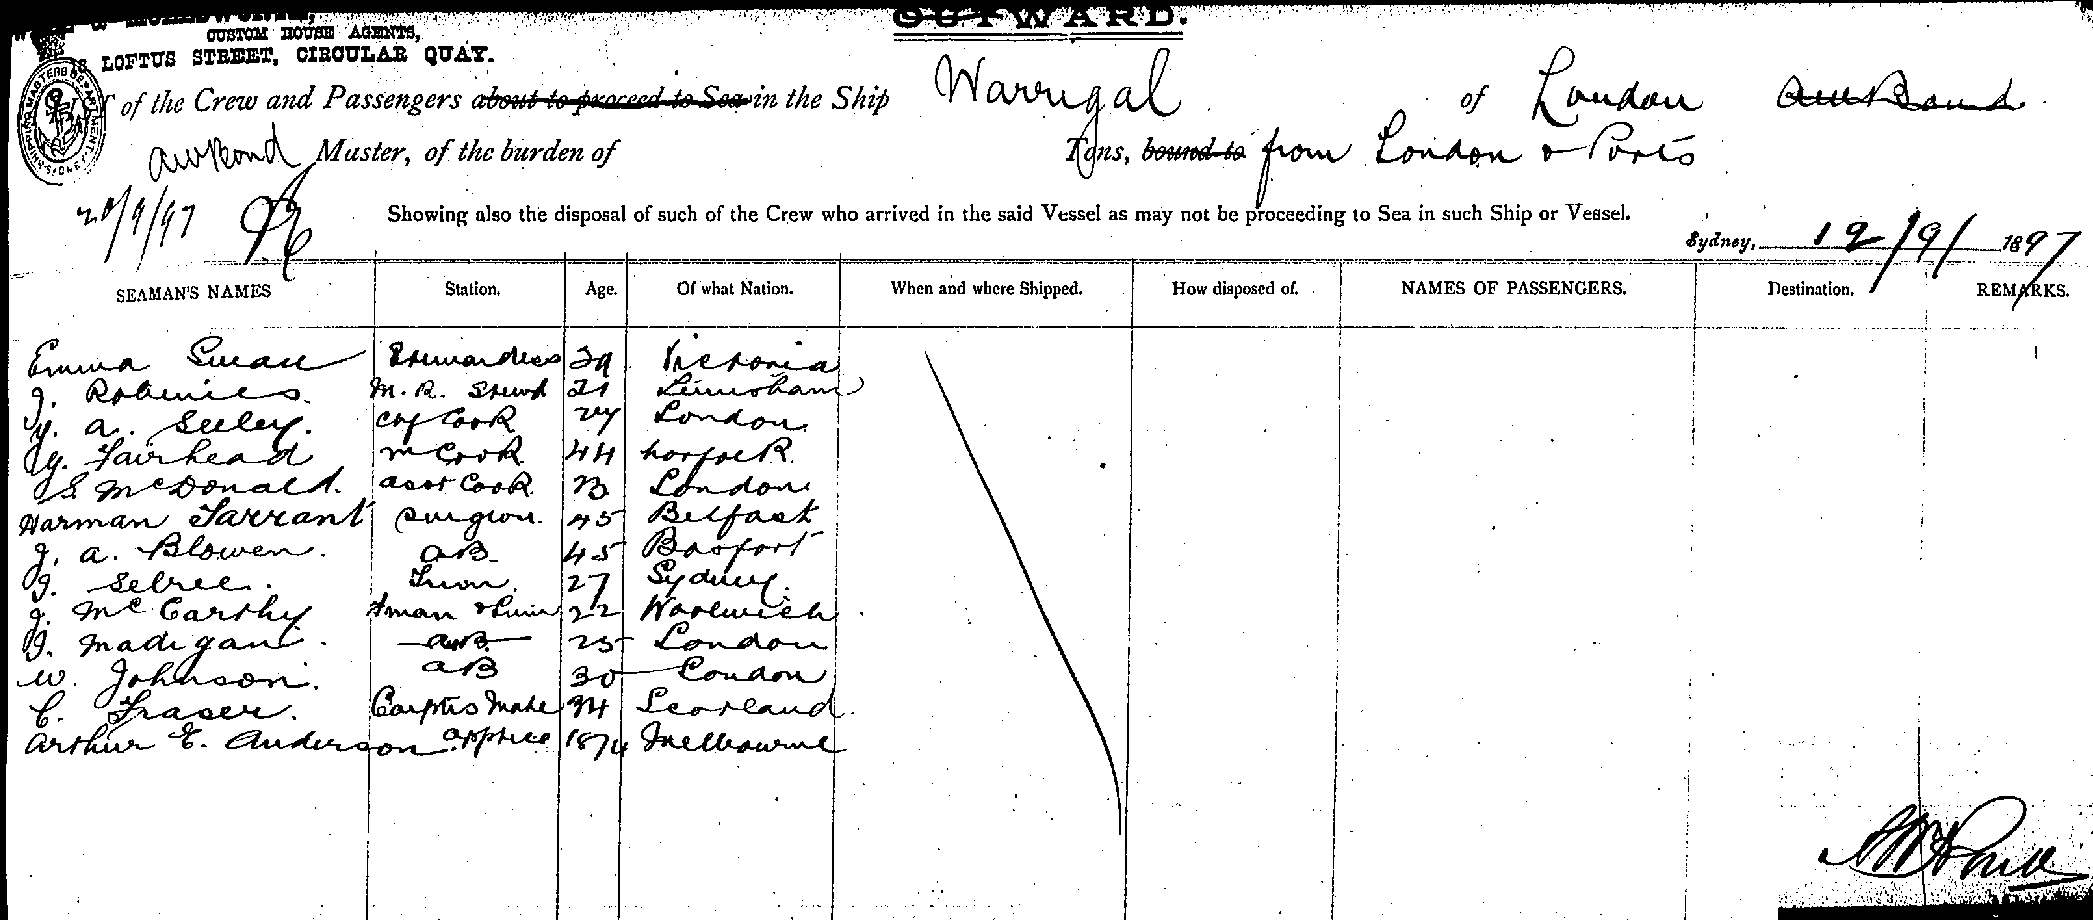 OUTWARD.
CUSTOM HOUSE AGENTS,
LOFTUS STREET, CIRCULAR QUAY.
of the Crew and Passengers about to proceed to Sea in the Ship Warrigal of London AW Bond
AW Bond Master, of the burden of Tons, bound to from London & Ports
20/9/97
Showing also the disposal of such of the Crew who arrived in the said Vessel as may not be proceeding to Sea in such Ship or Vessel.
Sydney, 12/9/ 1897
SEAMAN'S NAMES Station. Age. Of what Nation. When and where Shipped. How disposed of. NAMES OF PASSENGERS. Destination. REMARKS.
Emma Swan Stewardess 39 Victoria
J. M. R. Stewd 21 Lewisham
a. Seeley. Cook 24 London
G. Fairhead Cook 44
S McDonald. asst Cook 23 London
Harman Tarrant Surgeon. 45 Belfast
J. a. Blowen. aB 45
J. Selree. Trim. 27 Sydney.
J. McCarthy 22 Woolwich
J. Madigan. aB 25 London
W. Johnson. aB 30 London
C. Fraser. Carptrs Mate 34 Scotland.
Arthur E. Anderson apptice 1874 Melbourne
AW Bond